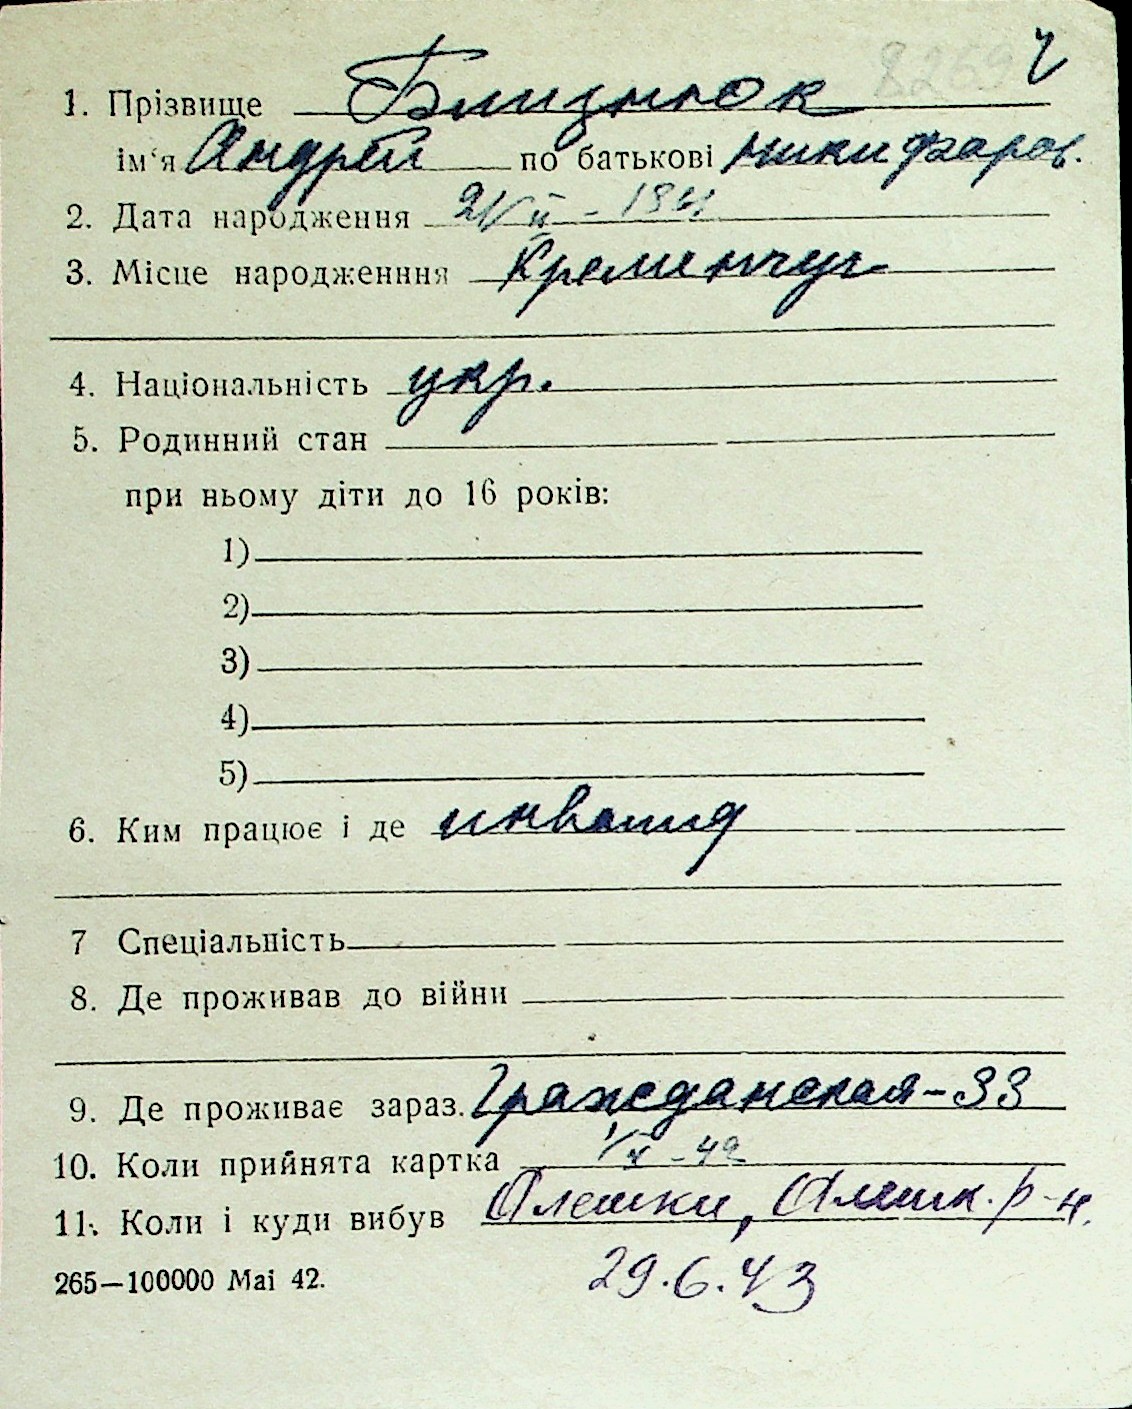 8269 ч
1. Прізвище Близнюк
ім‘я Андрей по батькові Никифоров.
2. Дата народження 21/II - 1941
3. Місце народженння Кременчуг
4. Національність укр.
5. Родинний стан
при ньому діти до 16 років:
1)
2)
3)
4)
5)
6. Ким працює і де инвалид
7 Спеціальність
8. Де проживав до війни
9. Де проживає зараз. Гражданская-33
10. Коли прийнята картка - 42
11. Коли і куди вибув Олешки, Олешк. р-н.
265—100000 Маі 42. 29.6.43